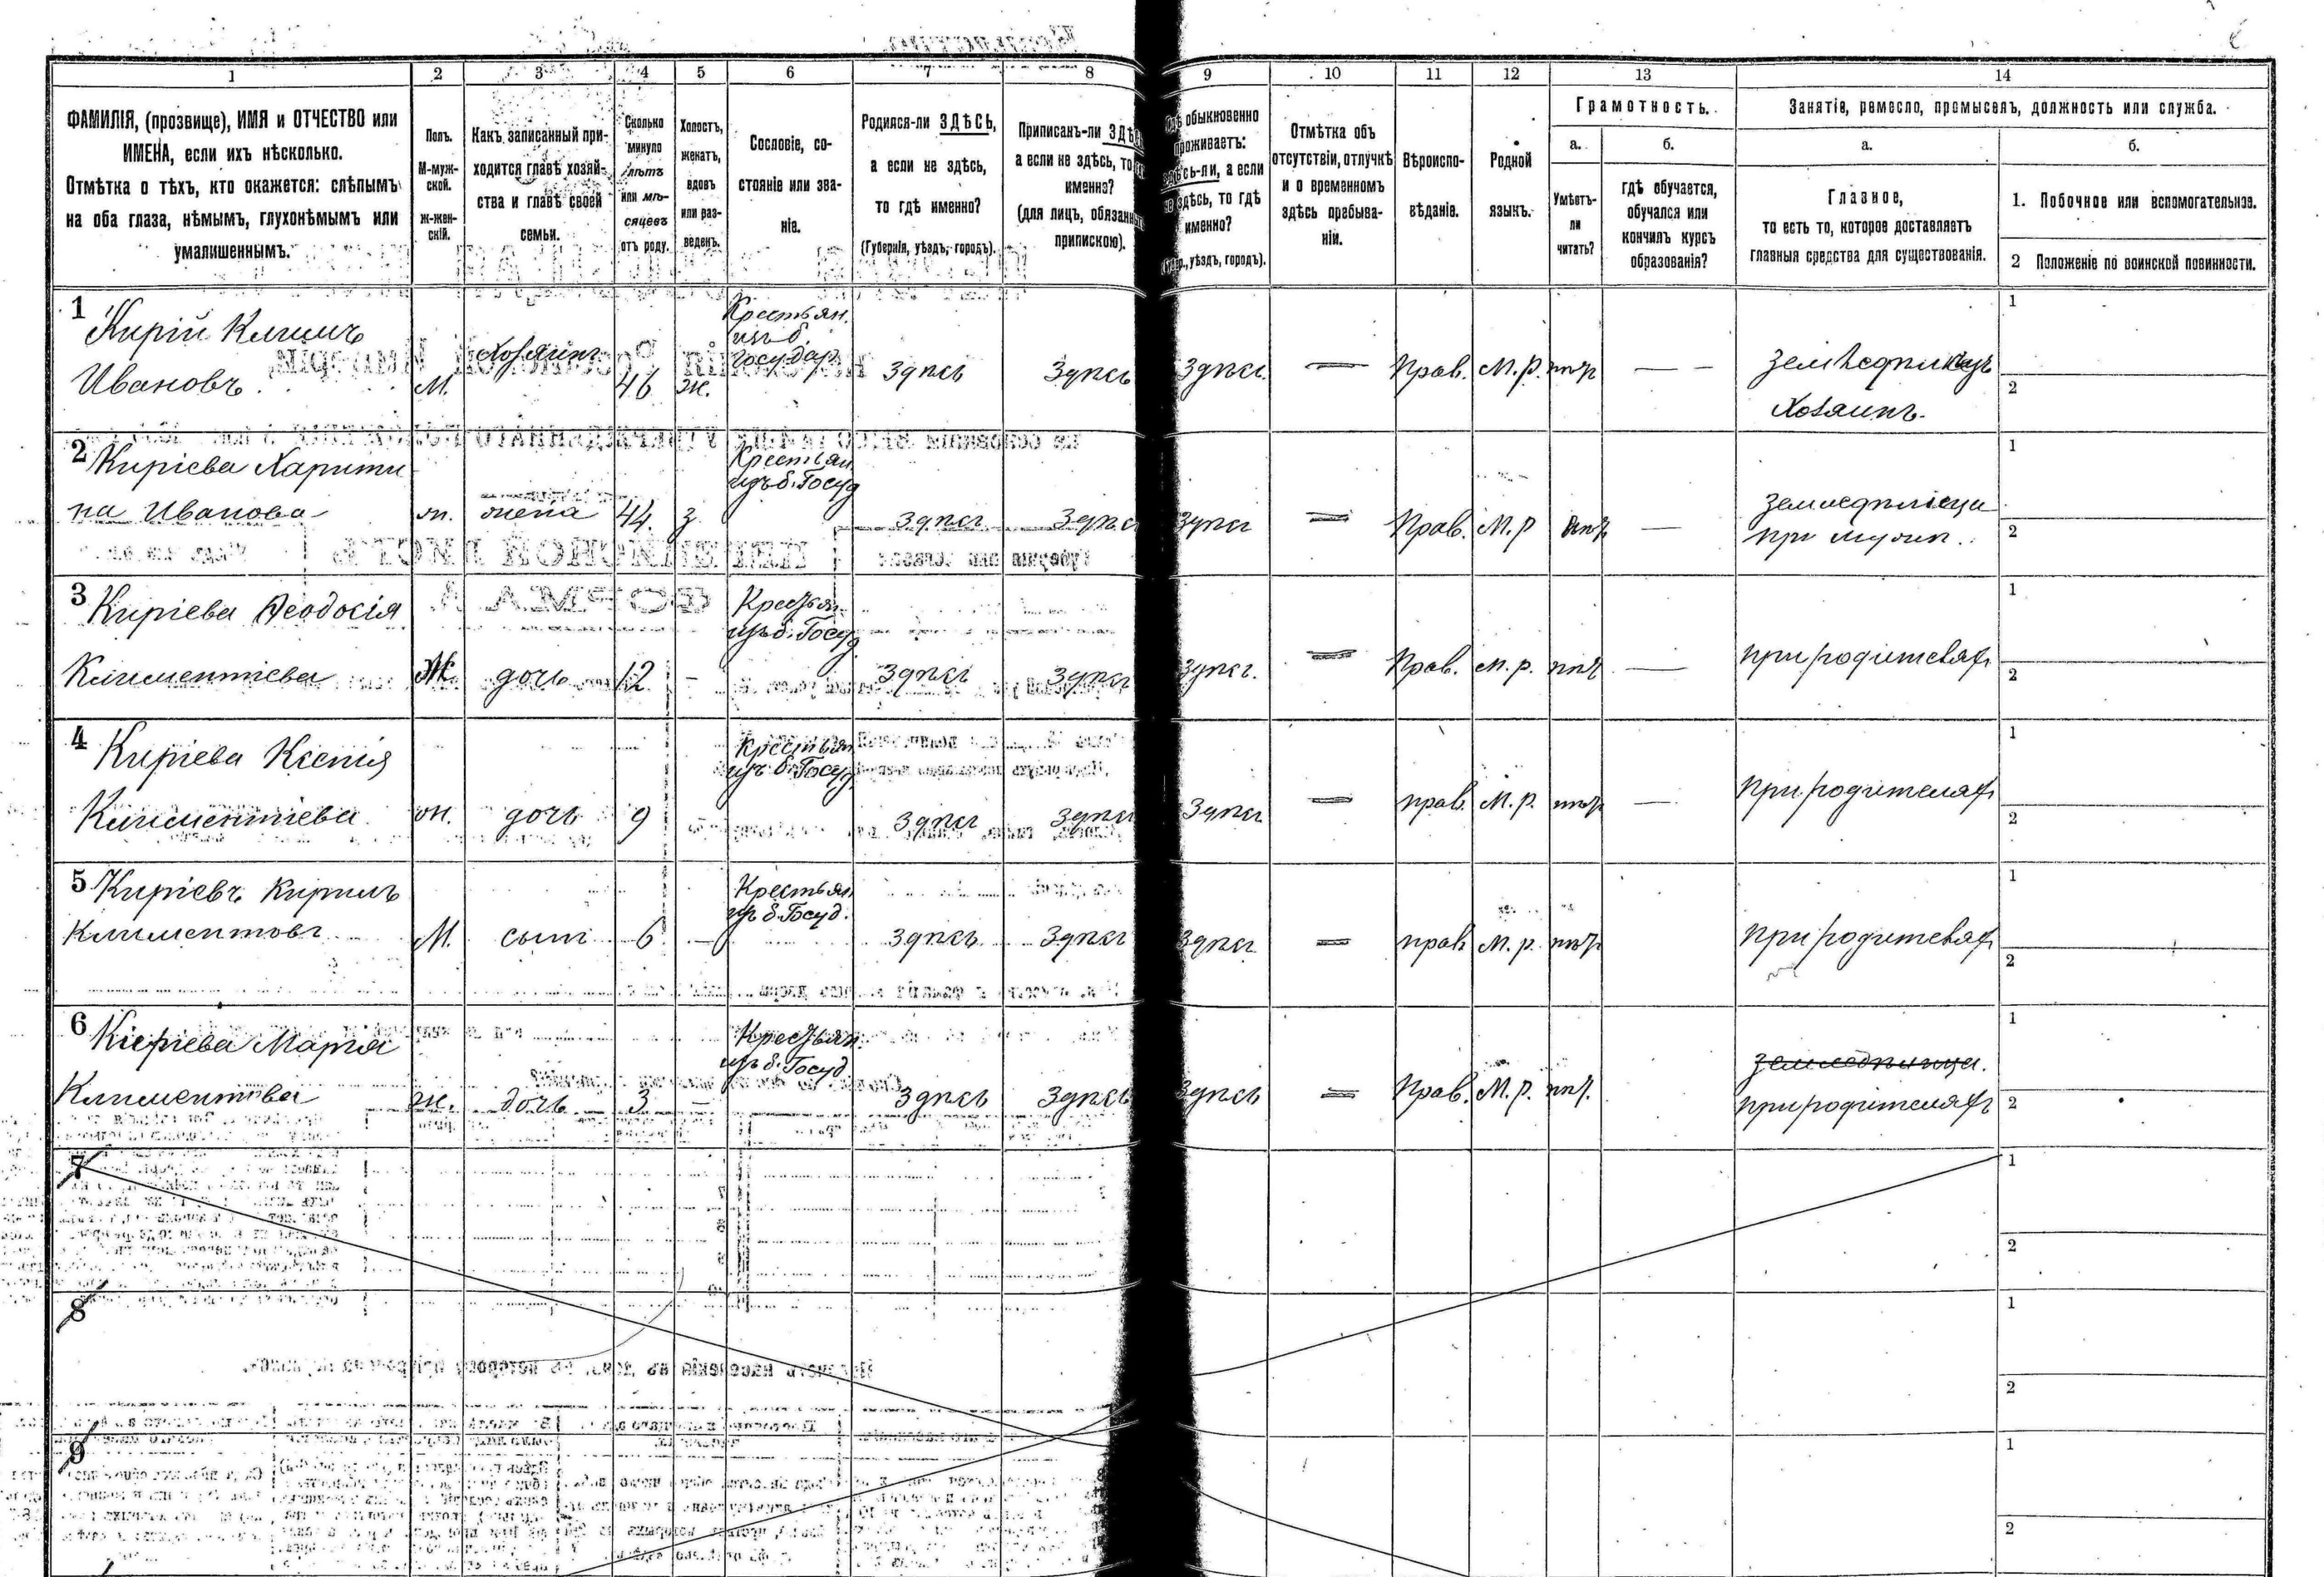 1 2 3 4 5 6 7 8 9 10 11 12 13 14
ФАМИЛІЯ, (прозвище), ИМЯ и ОТЧЕСТВО или
ИМЕНА, если ихъ нѣсколько.
Отмѣтка о тѣхъ, кто окажется: слѣпымъ
на оба глаза, нѣмымъ, глухонѣмымъ или
умалишеннымъ.
Полъ.
М-муж-
ской.
ж-жен-
скій.
Какъ записанный при-
ходится главѣ хозяй-
ства и главѣ своей
семьи.
Сколько
минуло
лѣтъ
или мѣ-
сяцевъ
отъ роду.
Холостъ,
женатъ,
вдовъ
или раз-
веденъ.
Сословіе, со-
стояніе или зва-
ніе.
Родился-ли ЗДѢСЬ,
а если не здѣсь,
то гдѣ именно?
(Губернія, уѣздъ, городъ).
Приписанъ-ли
а если не здѣсь, то
именно?
(для лицъ,
припискою).
обыкновенно
проживаетъ:
а если
здѣсь, то гдѣ
именно?
уѣздъ, городъ).
Отмѣтка объ
отсутствіи, отлучкѣ
и о временномъ
здѣсь пребыва-
ніи.
Вѣроиспо-
вѣданіе.
Родной
языкъ.
Грамотность.
а.
Умѣетъ-
ли
читать?
б.
гдѣ обучается,
обучался или
кончилъ курсъ
образованія?
Занятіе, ремесло, промыселъ, должность или служба.
а.
Главное,
то есть то, которое доставляетъ
главныя средства для существованія.
б.
1. Побочное или вспомогательное.
2 Положеніе по воинской повинности.
1 Кирій Климъ
Ивановъ М. Хозяинъ 46 ж. Крестьян.
изъ б.
государ. Здѣсь Здѣсь Здѣсь — Прав. М.р. нѣт — — Земледѣлецъ
Хозяинъ. 1
2
2 Киріева Харити
на Иванова ж. жена 44. з Крестьян
изъ б. Госуд Здѣсь Здѣсь Здѣсь — Прав. М.р нѣт —
при 1
2
3 Киріева Ѳеодосія
Климентіева Ж. дочь 12 - Крестьян.
изъ б. Госуд Здѣсь Здѣсь Здѣсь. — Прав. м.р. нѣт — при родителях 1
2
4 Киріева Ксенія
Климентіева ж. дочь 9 Крестьян
изъ б. Госуд Здѣсь Здѣсь Здѣсь — прав. М.р. нѣт — При родителях 1
2
5 Киріевъ Кирилъ
Климентовъ М. сынъ 6. — Крестьян
изъ б. Госуд. Здѣсь Здѣсь Здѣсь — прав М.р. нѣт при родителях 1
2
6 Киріева Марія
Климентіева ж. дочь 3 — Крестьян.
изъ б. Госуд Здѣсь Здѣсь Здѣсь — Прав. М.р. нѣт.
при родителях 1
2
7 1
2
8 1
2
9 1
2